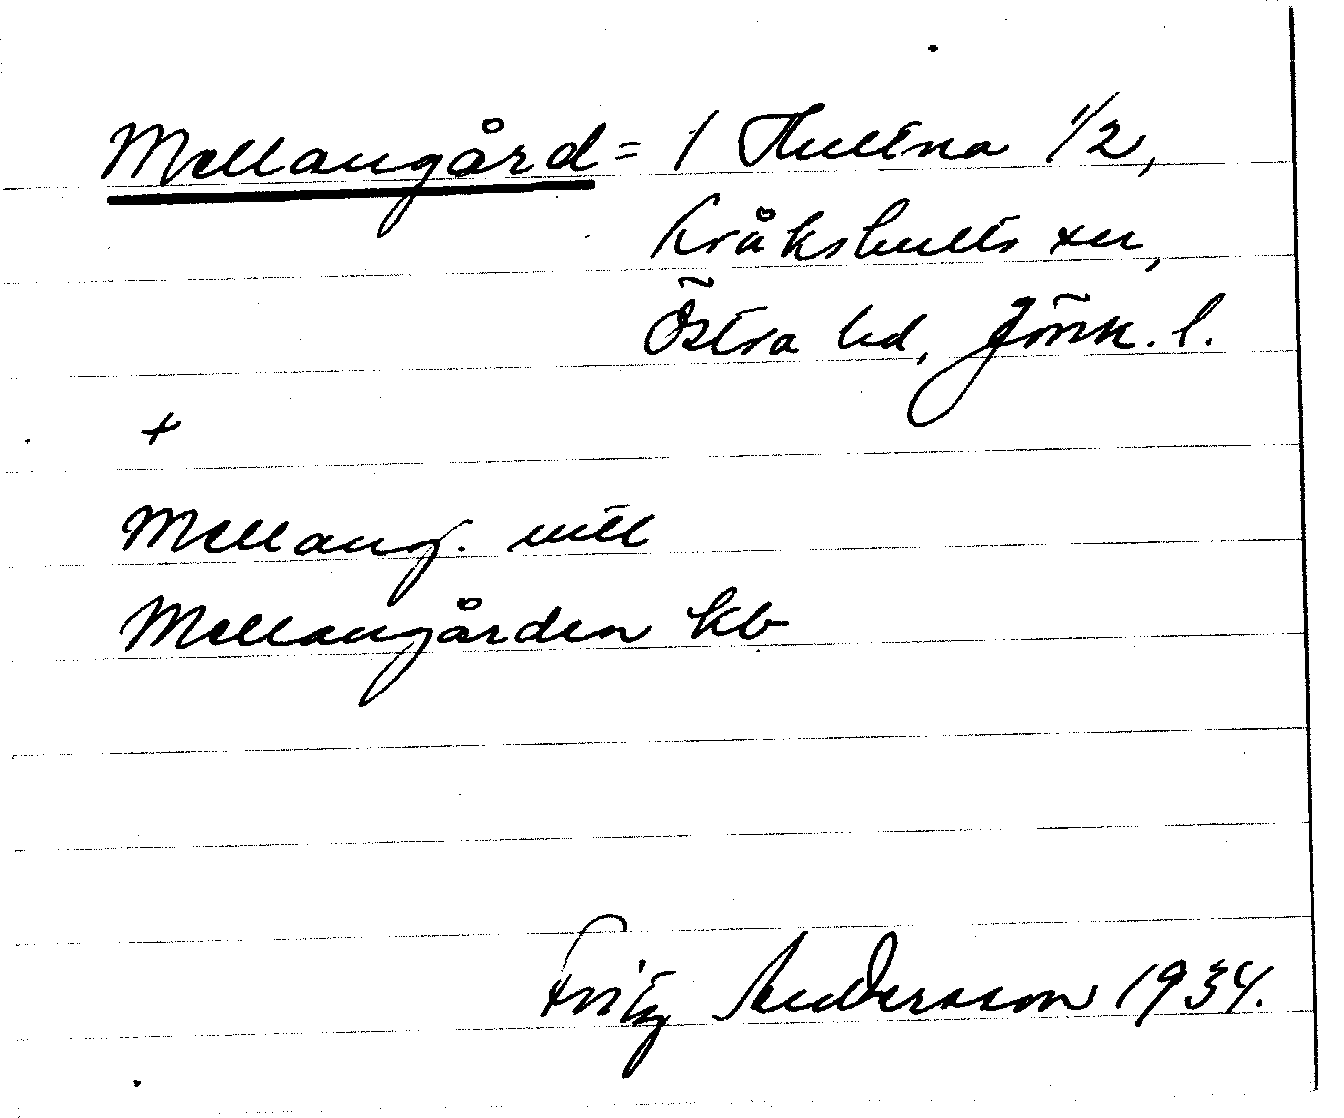 Mellangård = 1 Hultna 1/2,
Kråkshults sn,
Östra hd, Jönk. l.
+
Mellang. mtl
Mellangården kb
Fritz Andersson 1934.